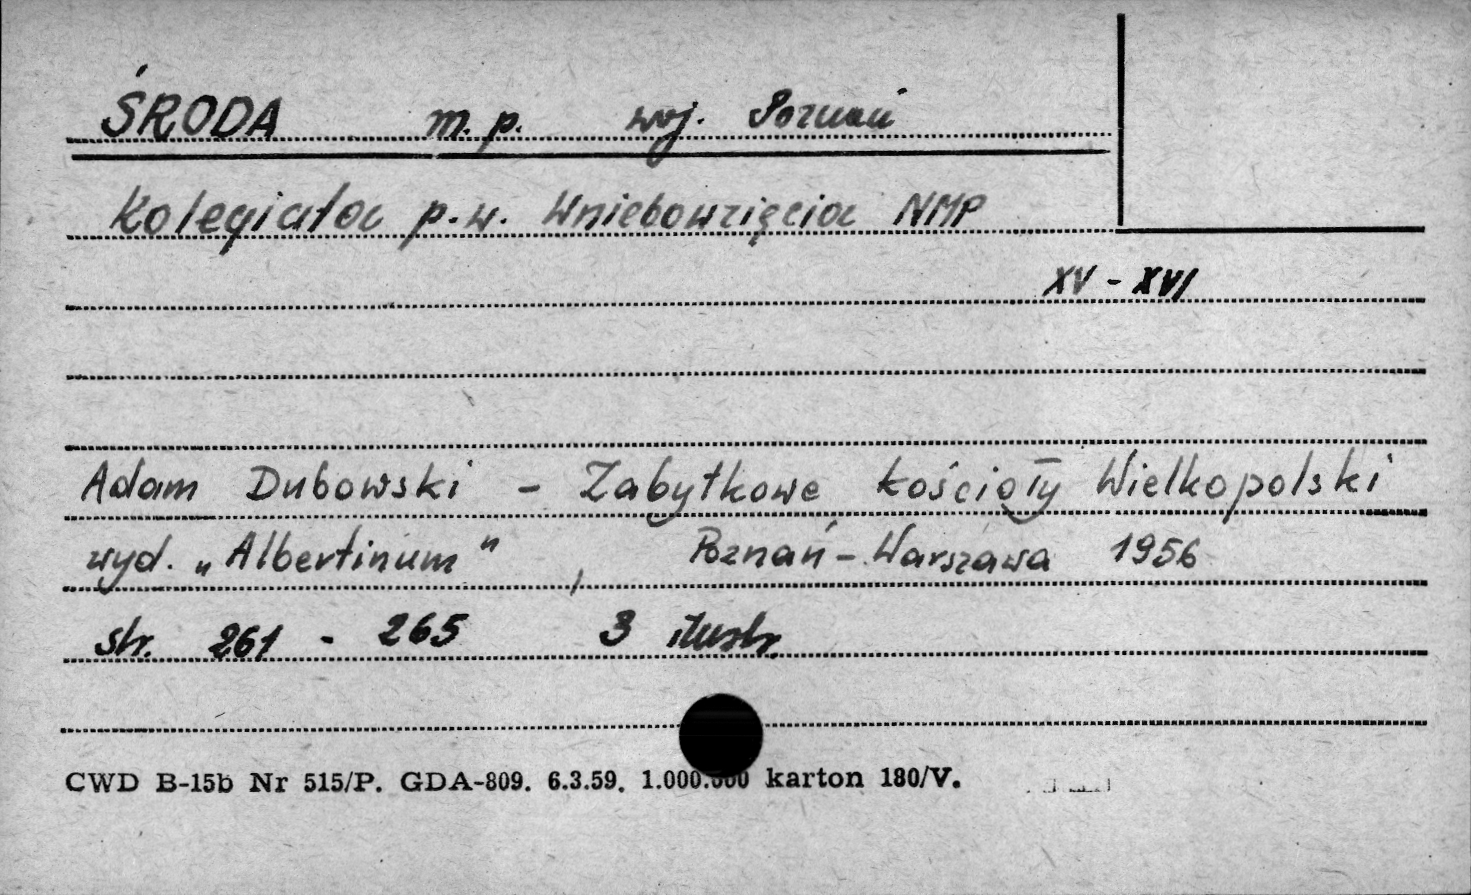 ŚRODA m. p. woj. Poznań
Kolegiata p.w. Wniebowzięcia NMP
XV - XVI
Adam Dubowski - Zabytkowe kościoły Wielkopolski
wyd. „Albertinum", Poznań - Warszawa 1956
str. 261 - 265 3 ilustr.
CWD B-15b Nr 515/P. GDA-809. 6.3.59. 1.000.000 karton 180/V.